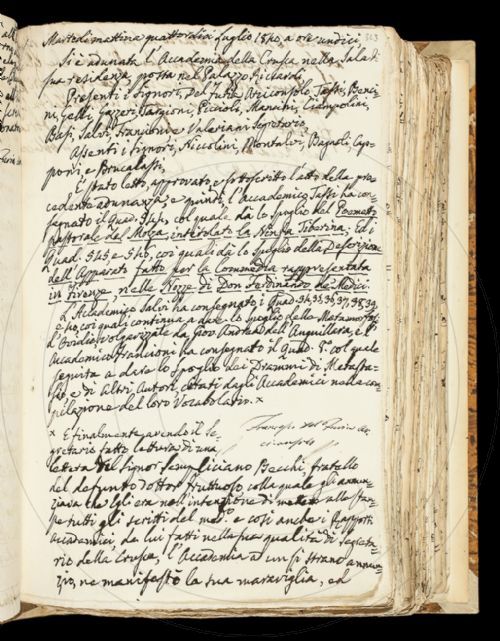 Martedi mattina quattordici Luglio 1840, a ore undici
363
Si è adunata l'Accademia della Crusca nella Sala di
sua residenza, posta nel Palazzo Riccardi.
Presenti i Signori, Del Furia Arciconsolo, Tassi, Benci=
ni, Gelli, Gazzeri, Targioni, Piccioli, Mancini, Ciampolini,
Basi, Salvi, Franciони e Valeriani Segretario
Assenti i Signori, Niccolini, Montalvi, Bagnoli, Cap=
poni, e Brucalassi,
È stato letto, approvato, e sottoscritto l'atto della pre=
cedente adunanza; e quindi, l'Accademico Tassi ha con=
segnato il Quad. col quale dà lo spoglio del Poemetto
Pastorale del Molza, intitolato la Ninfa Tiberina; ed i
Quad. 545 e 546, coi quali dà lo spoglio della Descrizione
dell'Apparato fatto per la Commedia rappresentata
in Firenze, nelle Nozze di Don Ferdinando de' Medici.
L'Accademico Salvi ha consegnati i Quad. 34, 35, 36, 37, 38, 39,
e 40, coi quali continua a dare lo spoglio delle Metamorfosi
d'Ovidio, volgarizzate da Giov. Andrea dell'Anguillara; e l'
Accademico Francioni ha consegnato il Quad. 5°. col quale
seguita a dare lo spoglio dei Drammi di Metasta=
sio, e di altri Autori, citati dagli Accademici nella com=
pilazione del loro Vocabolario. ×
× E finalmente avendo il Se=
gretario fatto lettura di una
Francesco del Furia Ar=
ciconsolo
lettera del Signor Feligliciano Becchi, fratello
del defunto Dottor Fruttuoso, colla quale gli annun=
ziava che Egli era nell'intenzione di mettere alle stam=
pe tutti gli scritti del med.mo e così anche i Rapporti
accademici da lui fatti nella sua qualità di Segreta=
rio della Crusca, l'Accademia a un sì strano annun=
zio, ne manifestò la sua maraviglia, ed